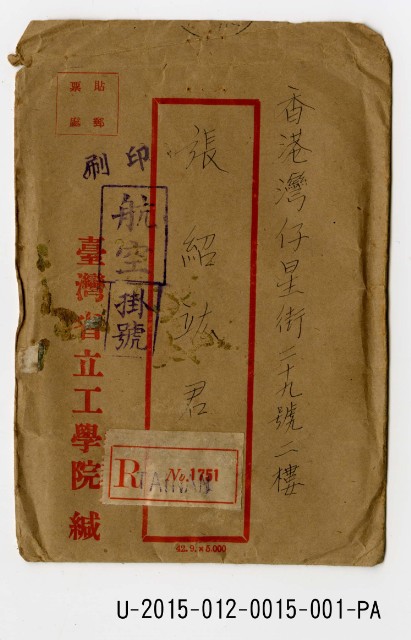 香港灣仔星街二十九號二樓
張紹竑君
貼郵票處
印刷
航空
掛號
臺灣省立工學院緘
R No. 1751
TAINAN
42.9.×5.000
U-2015-012-0015-001-PA